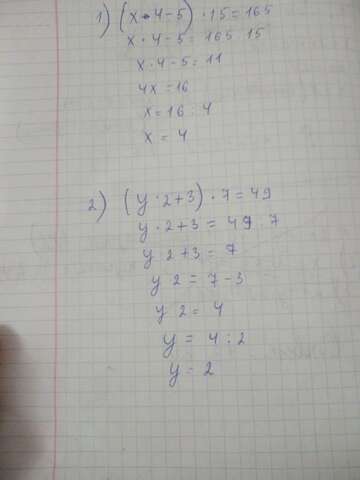 1) (x·4-5)·15=165
x·4-5=165 15
x·4-5=11
4x=16
x=16:4
x=4
2) (y·2+3)·7=49
y·2+3=49 7
y 2+3=7
y 2=7-3
y 2=4
y=4:2
y=2